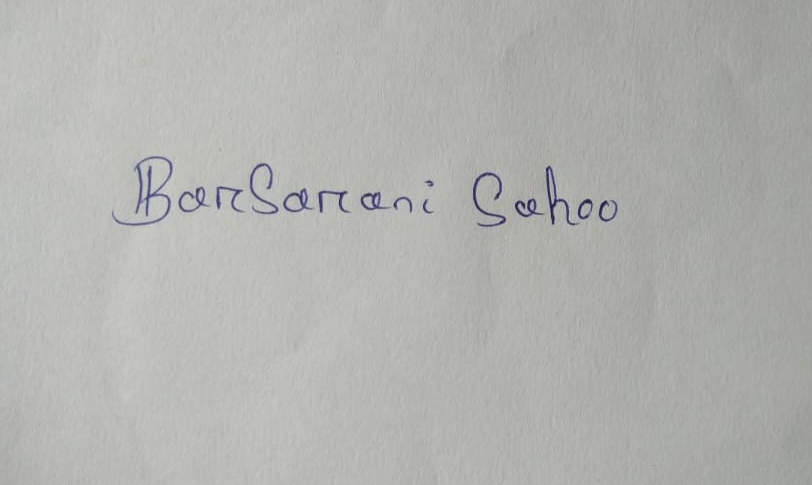 BarSarani Sahoo